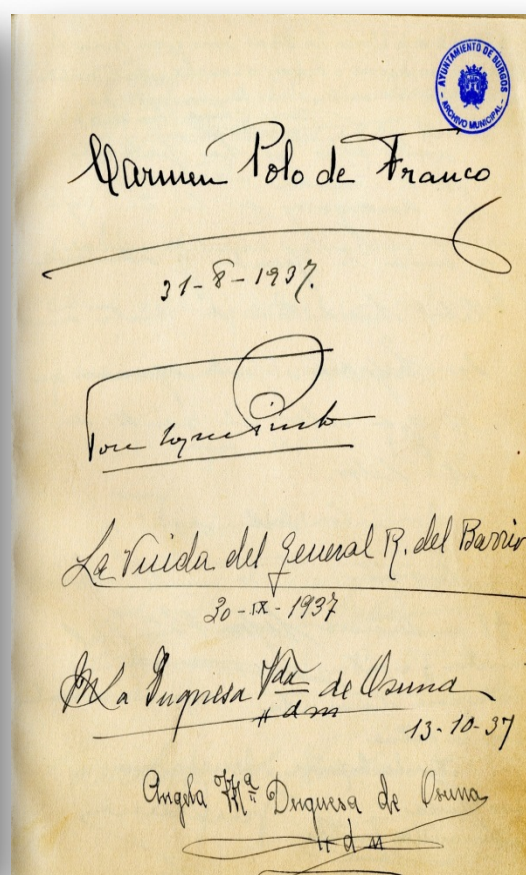 AYUNTAMIENTO DE BURGOS
- ARCHIVO MUNICIPAL -
Carmen Polo de Franco
31-8-1937.
La Viuda del General R. del Barrio
20-IX-1937
La Duquesa Vda de Osuna
13-10-37
Angela Mª Duquesa de Osuna